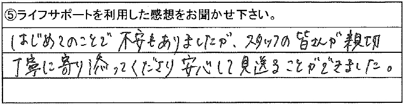 ⑤ライフサポートを利用した感想をお聞かせ下さい。
はじめてのことで不安もありましたが、スタッフの皆さんが親切
丁寧に寄り添ってくださり安心して見送ることができました。